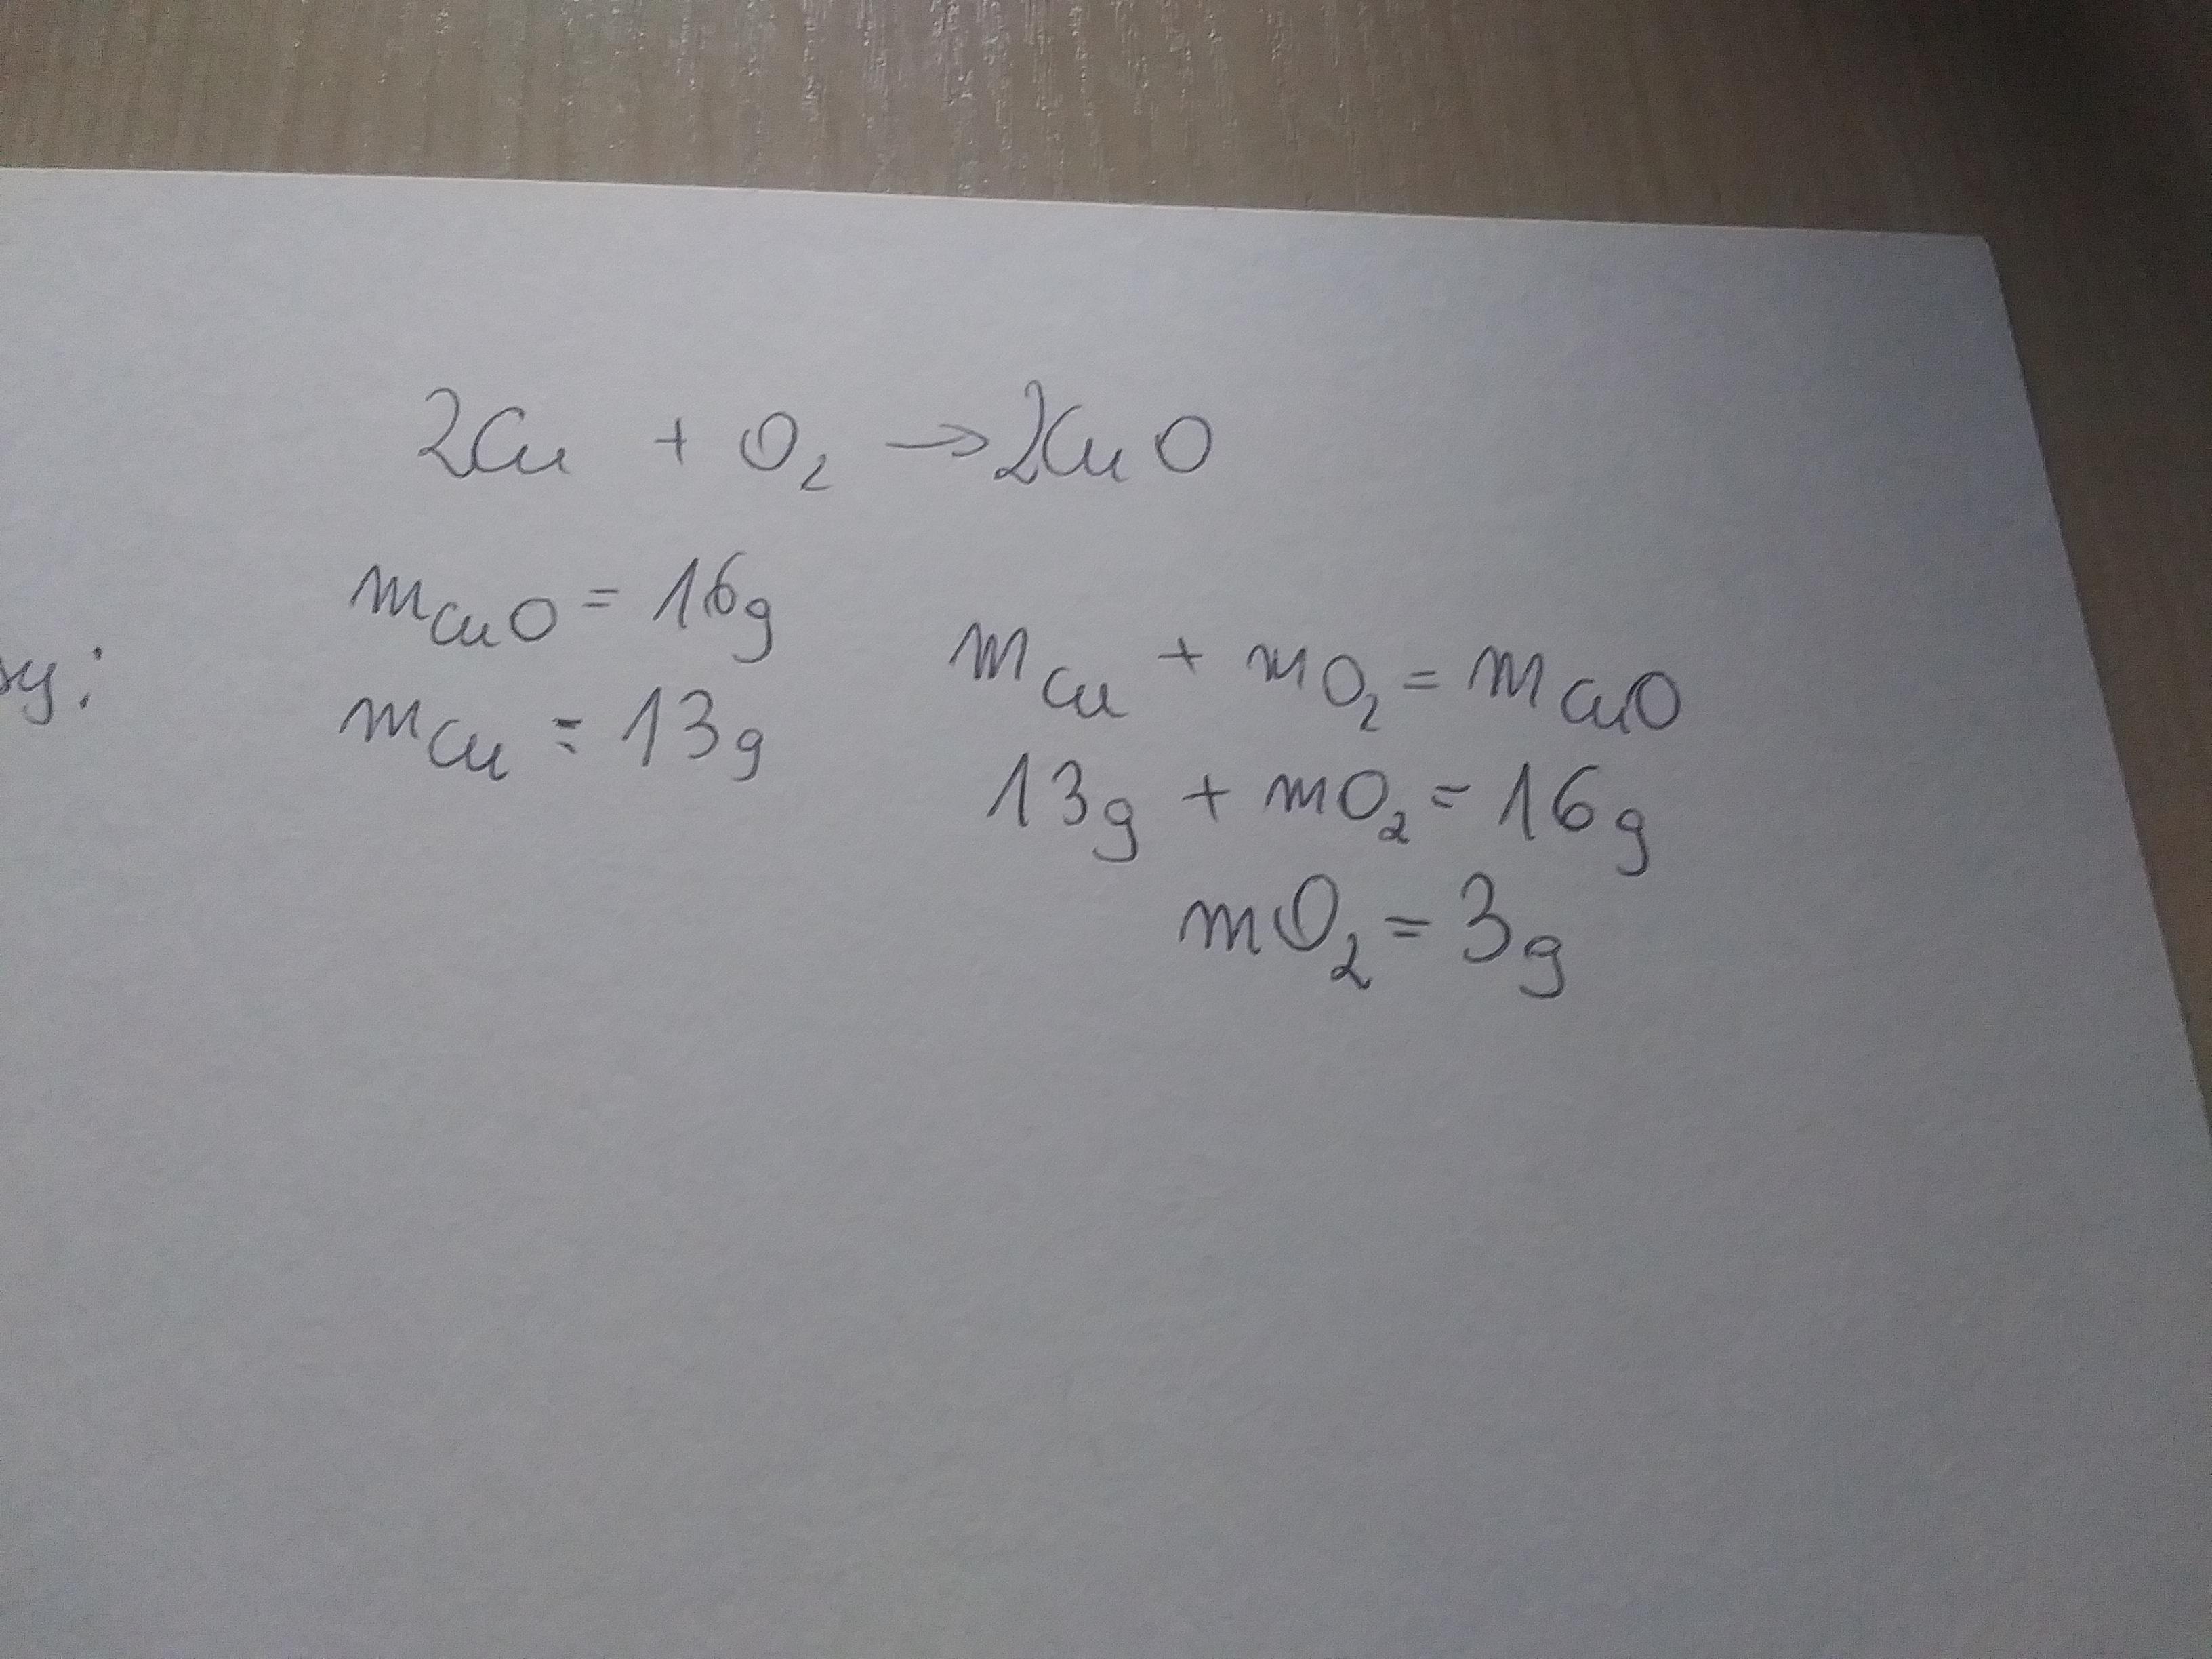 2Cu + O₂ → 2CuO
mCuO = 16g
mCu = 13g
mCu + mO₂ = mCuO
13g + mO₂ = 16g
mO₂ = 3g